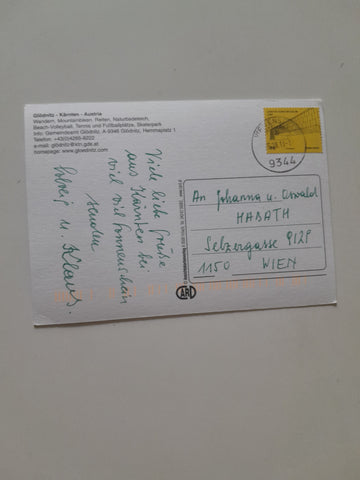 Glödnitz - Kärnten - Austria
Wandern, Mountainbiken, Reiten, Naturbadeteich,
Beach-Volleyball, Tennis und Fußballplätze, Skaterpark
Info: Gemeindeamt Glödnitz, A-9346 Glödnitz, Hemmaplatz 1
Telefon: +43(0)4265-8222
e-mail: gloednitz@ktn.gde.at
homepage: www.gloednitz.com
Viele liebe Grüße
aus Kärnten bei
viel viel Sonnenschein
senden
u. Klaus.
9344
An Johanna u. Oswald
HABATH
Selzergasse 9/28
1150 WIEN